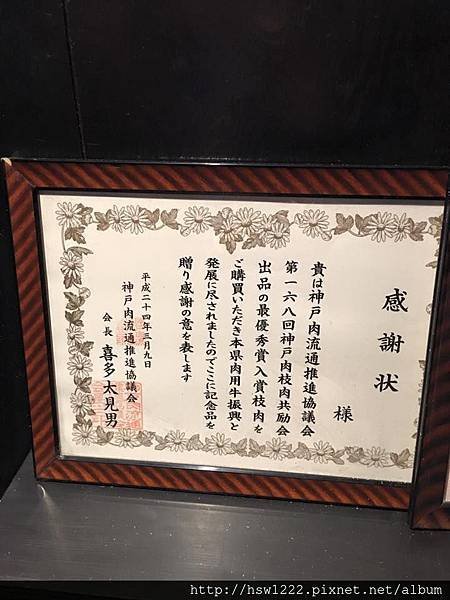 感謝状
様
貴は神戸肉流通推進協議会
第一六八回神戸肉枝肉共励会
出品の最優秀賞入賞枝肉を
ご購買いただき本県肉用牛振興と
発展に尽されましたのでここに記念品を
贈り感謝の意を表します
平成二十四年三月九日
神戸肉流通推進協議会
会長 喜多太見男
http://hsw1222.pixnet.net/album